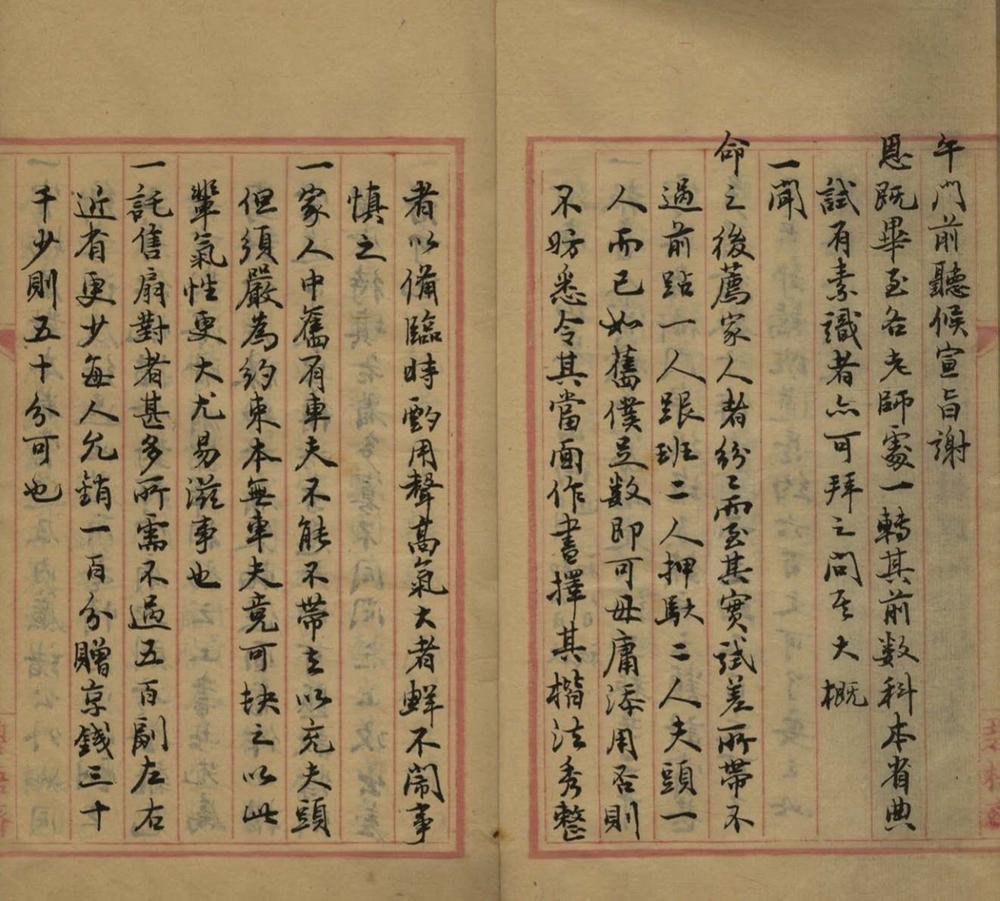 午門前聽候宣旨謝
恩既畢至各老師處一轉其前數科本省典
試有素識者亦可拜之問其大概
一聞
命之後薦家人者紛〻而至其實試差所帶不
過前跕一人跟班二人押馱二人夫頭一
人而已如舊僕足数即可毋庸添用否則
不妨悉令其當面作書擇其楷法秀整
者以備臨時酌用聲高氣大者鮮不鬧事
慎之
一家人中舊有車夫不能不帶去以充夫頭
但須嚴為約束本無車夫竟可缺之以此
輩氣性更大尤易滋事也
一託售扇對者甚多所需不過五百副左右
近省更少每人允銷一百分贈京錢三十
千少則五十分可也